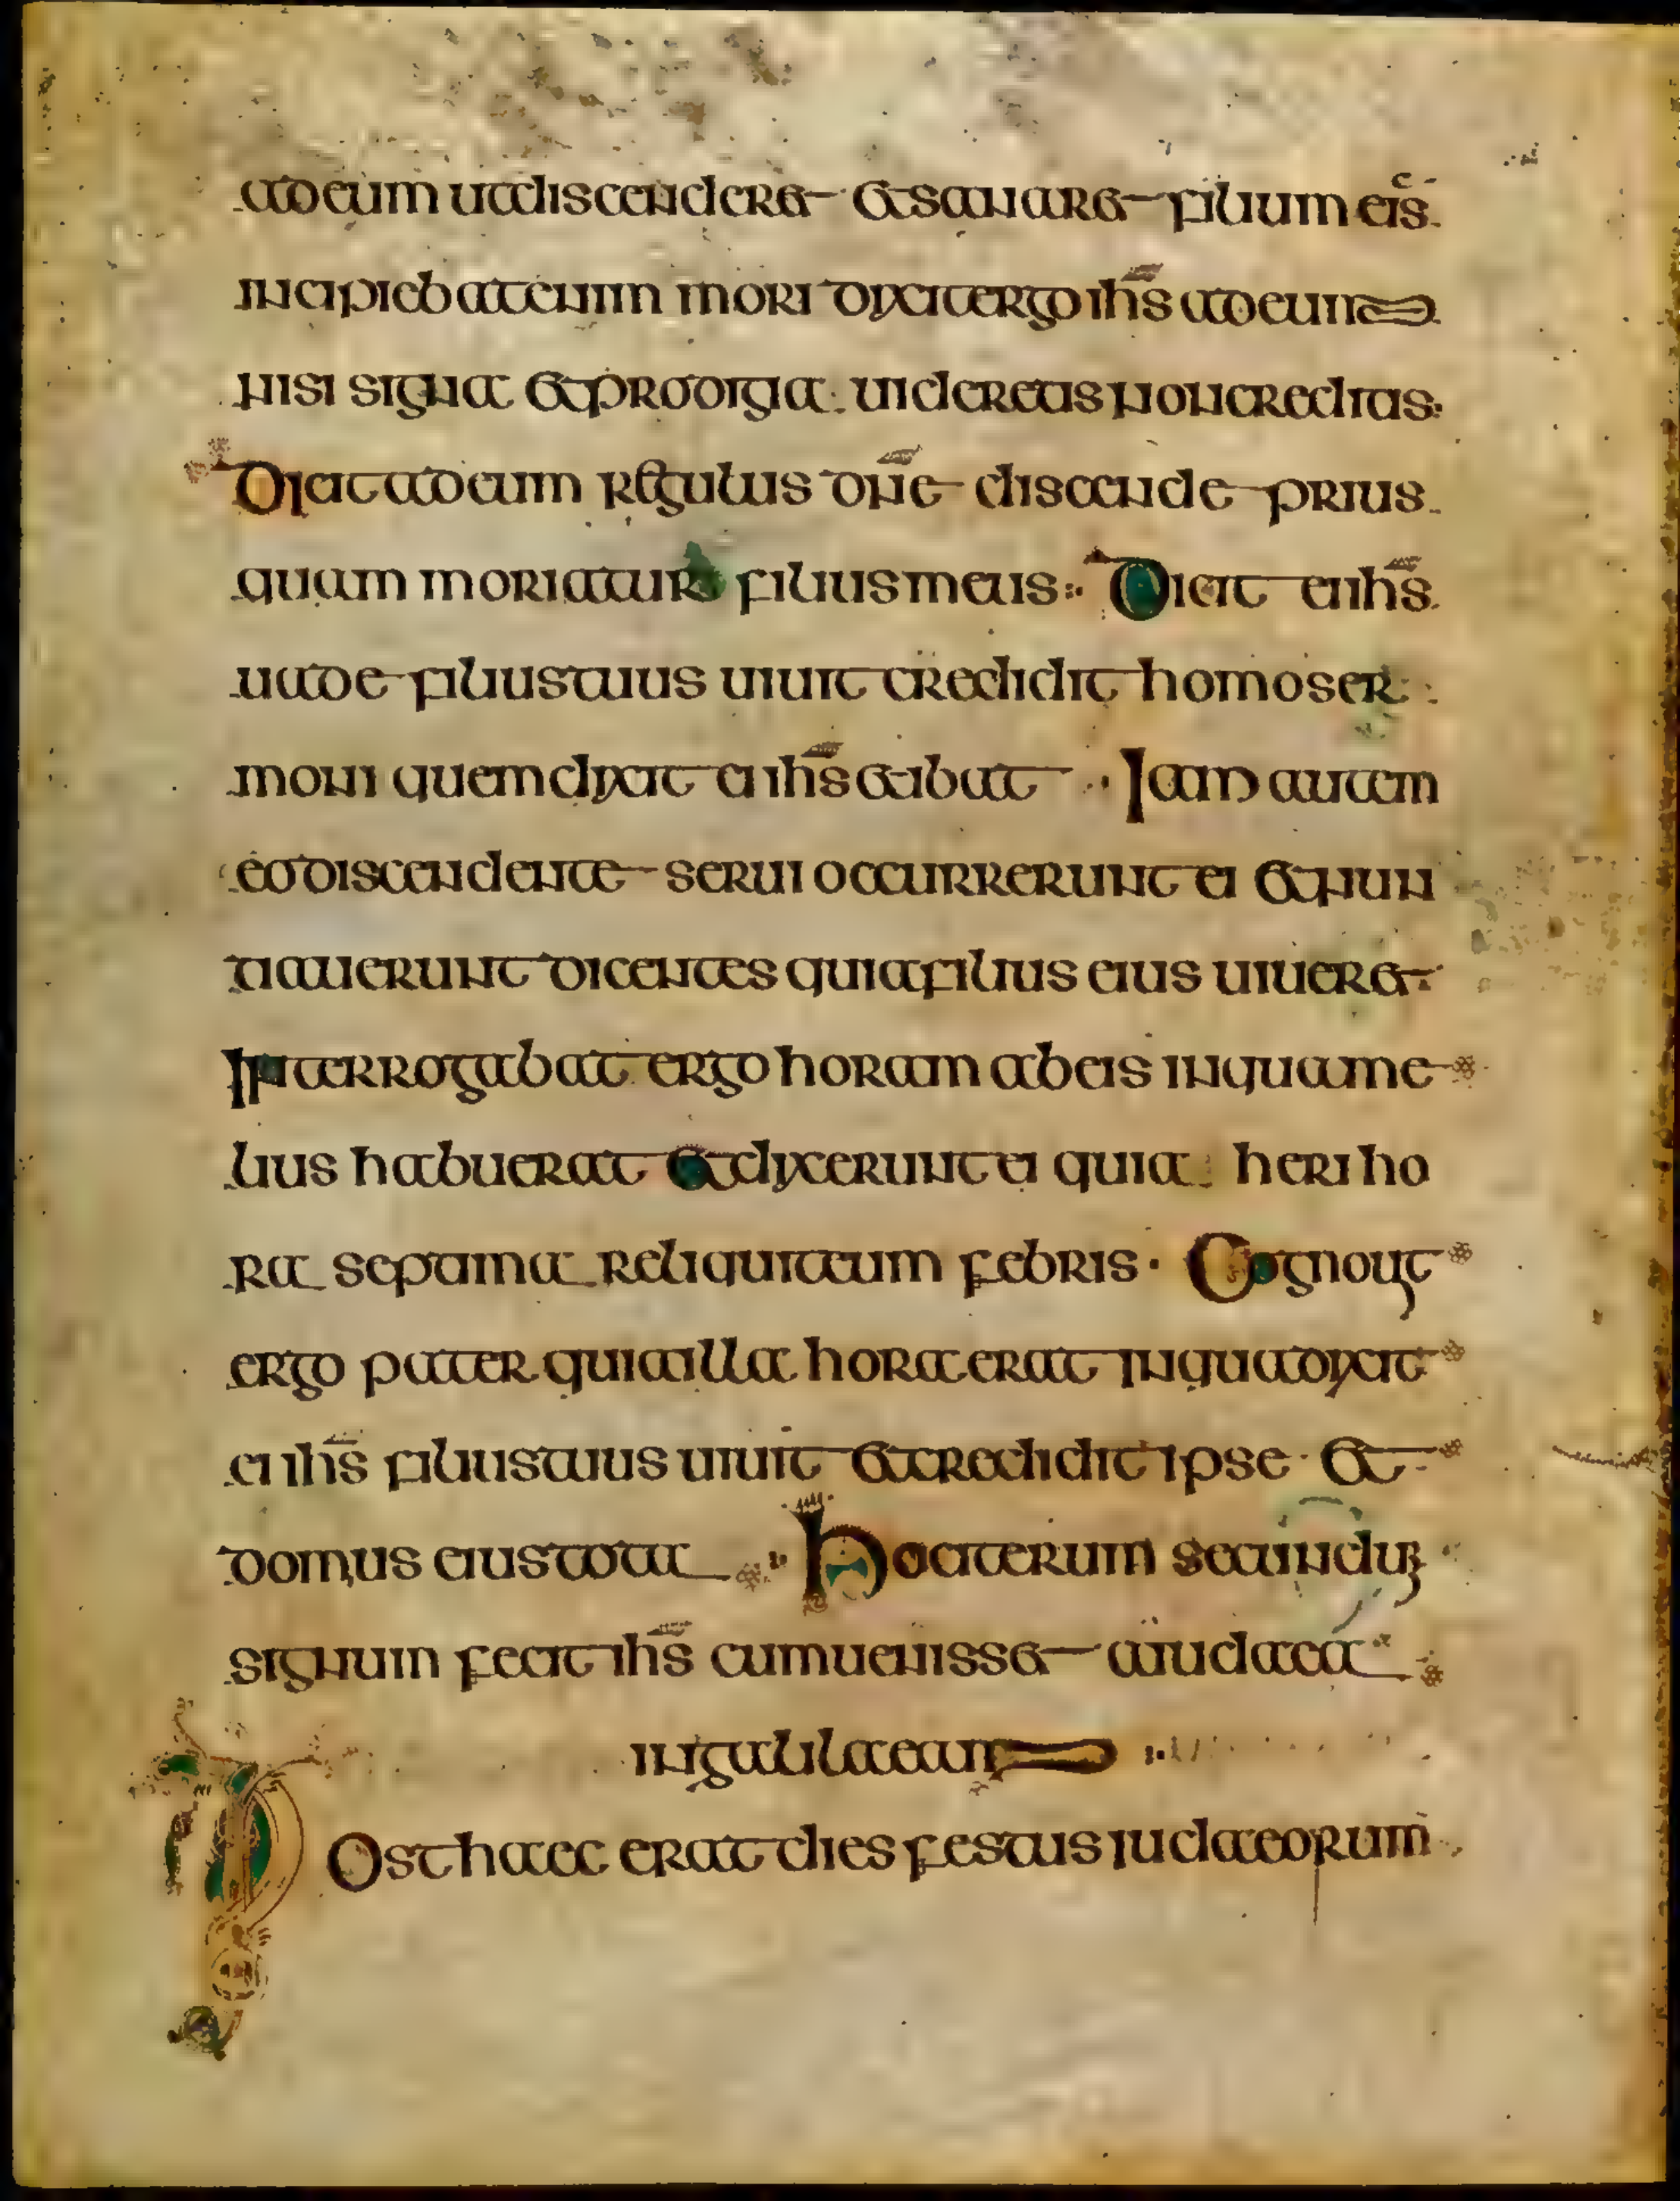 adeum utdiscenderet etsanaret filium eis
incipiebatenim mori dixitergo ihs adeum
nisi signa etprodigia uidereatis noncreditis
Dicitadeum regulus dne discende prius
quam moriatur filiusmeus Dicit eiihs
uade filiustuus uiuit credidit homoser
moni quemdixit ei ihs etibat Iam autem
eodiscendente serui occurrerunt ei etnun
tiauerunt dicentes quiafilius eius uiueret
Interrogabat ergo horam abeis inquame
lius habuerat etdixerunt ei quia heri ho
ra septima reliquiteum febris Cognouit
ergo pater quiailla hora erat inquadixit
ei ihs filiustuus uiuit etcredidit ipse et
domus eiustota Hociterum secundu
signum fecit ihs cumuenisset aiudaea
ingalilaeam
Posthaec erat dies festus iudaeorum